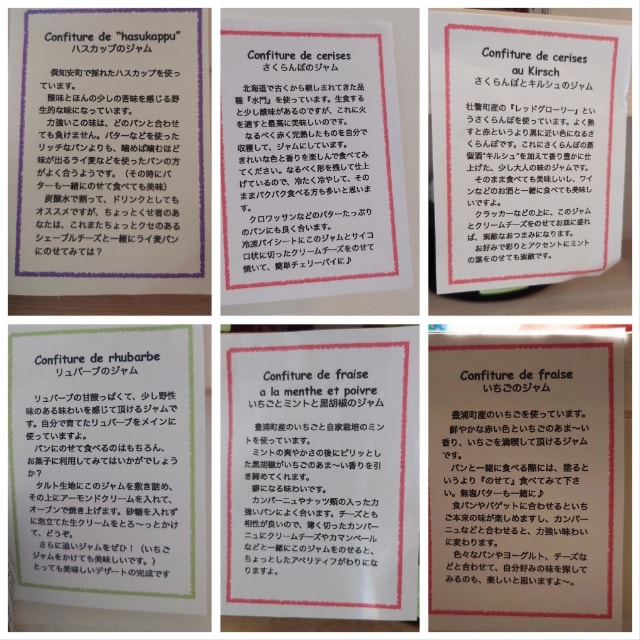 Confiture de "hasukappu"
ハスカップのジャム
倶知安町で採れたハスカップを使っ
ています。
酸味とほんの少しの苦味を感じる野
生的な味になっています。
力強いこの味は、どのパンと合わせ
ても負けません。バターなどを使った
リッチなパンよりも、噛めば噛むほど
味が出るライ麦などを使ったパンの方
がよく合うようです。（その時にバ
ターも一緒にのせて食べても美味）
炭酸水で割って、ドリンクとしても
オススメですが、ちょっとくせ者のあ
なたは、これまたちょっとクセのある
シェーブルチーズと一緒にライ麦パン
にのせてみては？
Confiture de cerises
さくらんぼのジャム
北海道で古くから親しまれてきた品
種『水門』を使っています。生食する
と少し酸味があるのですが、これに火
を通すと最高に美味しいのです。
なるべく赤く完熟したものを自分で
収穫して、ジャムにしています。
きれいな色と香りを楽しんで食べてみ
てください。なるべく形を残して仕上
げているので、冷たく冷やして、その
ままパクパク食べる方も多いと思いま
す。
クロワッサンなどのバターたっぷり
のパンにも良く合います。
冷凍パイシートにこのジャムとサイコ
ロ状に切ったクリームチーズをのせて
焼いて、簡単チェリーパイに♪
Confiture de cerises
au Kirsch
さくらんぼとキルシュのジャム
壮瞥町産の『レッドグローリー』とい
うさくらんぼを使っています。よく熟
すと赤というより黒に近い色になるさ
くらんぼです。これにさくらんぼの蒸
留酒"キルシュ"を加えて香り豊かに仕
上げた、少し大人の味のジャムです。
そのまま食べても美味しいし、ワイ
ンなどのお酒と一緒に食べても美味し
いですよ。
クラッカーなどの上に、このジャム
とクリームチーズをのせてお皿に盛れ
ば、素敵なおつまみになります。
お好みで彩りとアクセントにミント
の葉をのせても素敵です。
Confiture de rhubarbe
リュバーブのジャム
リュバーブの甘酸っぱくて、少し野性
味のある味わいを感じて頂けるジャムで
す。自分で育てたリュバーブをメインに
使っていますよ。
パンにのせて食べるのはもちろん、
お菓子に利用してみてはいかがでしょう
か？
タルト生地にこのジャムを敷き詰め、
その上にアーモンドクリームを入れて、
オーブンで焼き上げます。砂糖を入れず
に泡立てた生クリームをとろ～っとかけ
て、どうぞ。
さらに追いジャムをぜひ！（いちご
ジャムをかけても美味しいです。）
とっても美味しいデザートの完成です
Confiture de fraise
a la menthe et poivre
いちごとミントと黒胡椒のジャム
豊浦町産のいちごと自家栽培のミン
トを使っています。
ミントの爽やかさの後にピリッとし
た黒胡椒がいちごのあま～い香りを引
き締めてくれます。
癖になる味わいです。
カンパーニュやナッツ類の入った力
強いパンによく合います。チーズとも
相性が良いので、薄く切ったカンパー
ニュにクリームチーズやカマンベール
などと一緒にこのジャムをのせると、
ちょっとしたアペリティフがわりにな
りますよ。
Confiture de fraise
いちごのジャム
豊浦町産のいちごを使っています。
鮮やかな赤い色といちごのあま～い
香り、いちごを満喫して頂けるジャム
です。
パンと一緒に食べる際には、塗ると
いうより『のせて』食べてみて下さ
い。無塩バターも一緒に♪
食パンやバゲットに合わせるといち
ご本来の味が楽しめますし、カンパー
ニュなどと合わせると、力強い味わい
に変わります。
色々なパンやヨーグルト、チーズな
どと合わせて、自分好みの味を探して
みるのも、楽しいと思いますよ～。